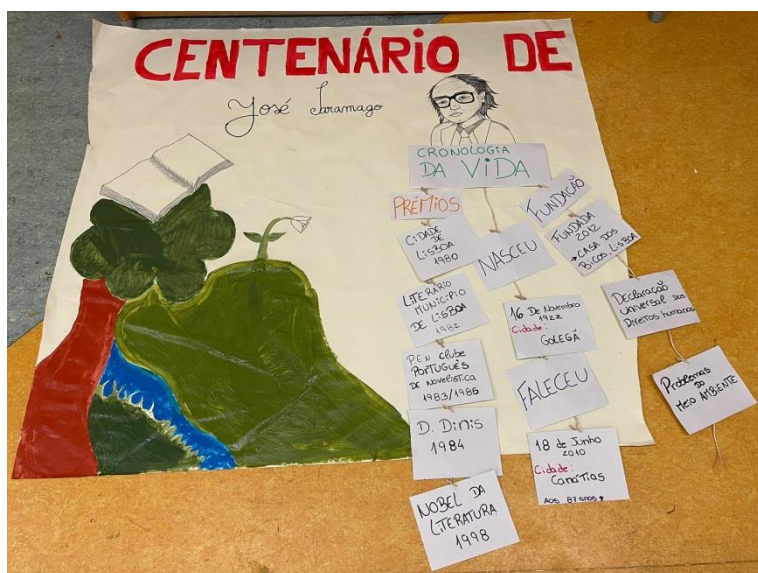 CENTENÁRIO DE
José Saramago
CRONOLOGIA
DA VIDA
PRÉMIOS
CIDADE
DE
LISBOA
1980
LITERÁRIO
MUNICIPIO
DE LISBOA
1982
P.E.N. Clube
PORTUGUÊS
DE NOVELISTICA
1983/1985
D. Dinis
1984
NOBEL DA
LITERATURA
1998
NASCEU
16 De Novembro
1922
Cidade:
GOLEGÃ
FALECEU
18 de Junho
2010
Cidade:
Canárias
AOS 87 anos
FUNDAÇÃO
FUNDADA
2012
→ CASA DOS
BICOS, LISBOA
Declaração
Universal dos
Direitos humanos
Problemas
do
Meio AMBIENTE